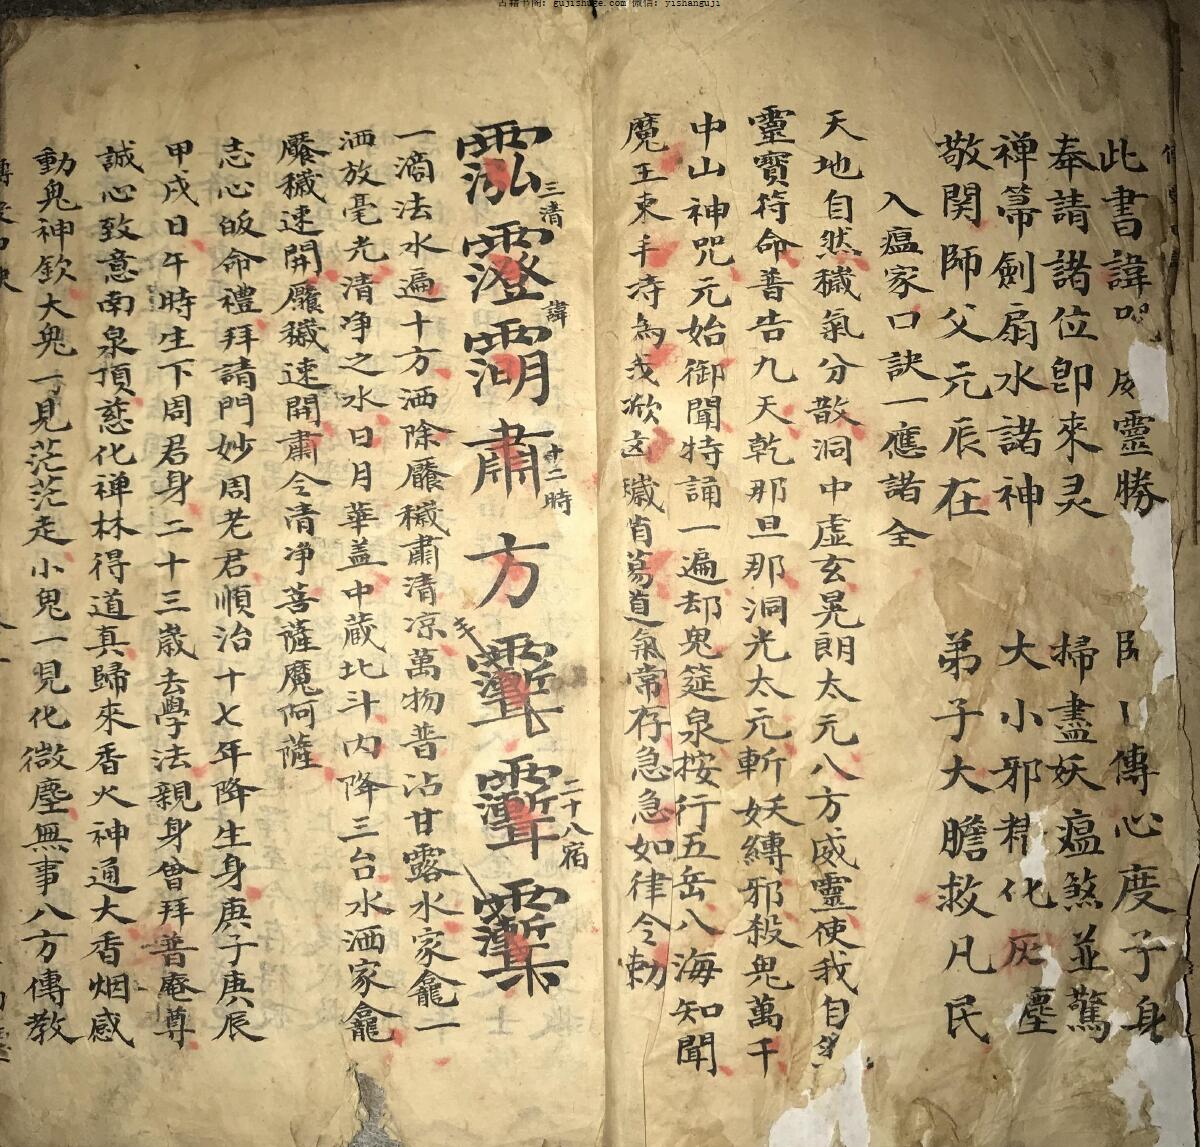 古籍书阁: gujishuge.com 微信: yishanguji
此書諱 威靈勝 傳心度子身
奉請諸位即來灵 掃盡妖瘟煞並驚
禅箒劍扇水諸神 大小邪精化灰塵
敬関師父元辰在 弟子大膽救凡民
入瘟家口訣一應諸全
天地自然穢氣分散洞中虚玄晃朗太元八方威靈使我自然
靈寶符命普告九天乾那旦那洞光太元斬妖縛邪殺鬼萬千
中山神咒元始御聞特誦一遍却鬼筵泉按行五岳八海知聞
魔王束手侍為我 穢消蕩道氣常存急急如律令勅
三清 諱 十二時 二十八宿
肅方
一滴法水遍十方洒除厴穢肅清凉萬物普沾甘露水家龕一
洒放毫光清净之水日月華盖中藏北斗内降三台水洒家龕
厴穢速開厴穢速開肅令清净菩薩魔阿薩
志心皈命禮拜請門妙周老君順治十七年降生身庚子庚辰
甲戌日午時生下周君身二十三歳去學法親身曾拜普庵尊
誠心致意南泉頂慈化禅林得道真歸來香火神通大香烟感
動鬼神欽大鬼一見茫茫走小鬼一見化微塵無事八方傳教